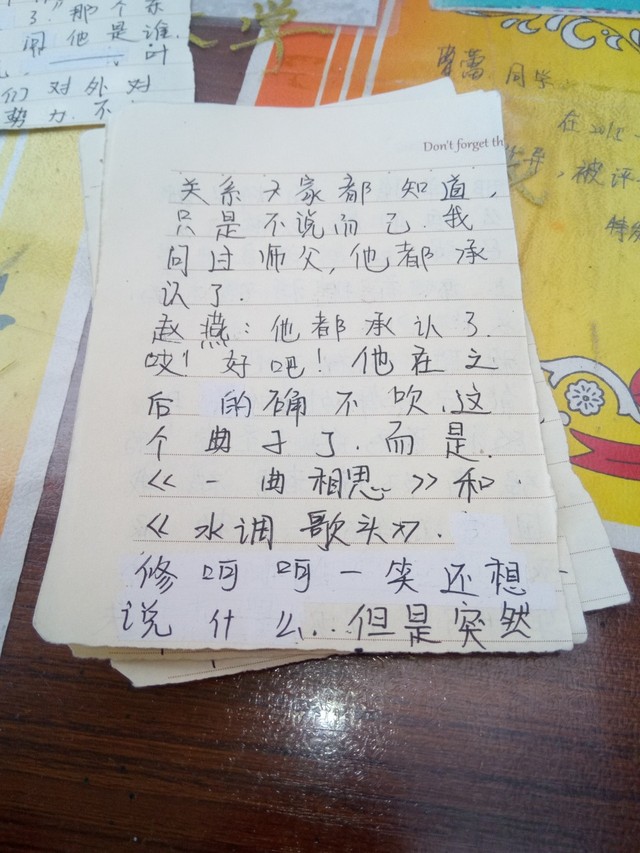 了"那个
闻他是谁.
们对外对
势力.不
学
同学
在2015
被评
特发
Don't forget th
关系大家都知道,
只是不说而已.我
问过师父,他都承
认了.
赵燕:他都承认了.
哎!好吧!他在之
后的确不吹.这
个曲子了.而是.
《一曲相思》和.
《水调歌头》.
修呵呵一笑还想
说什么...但是突然